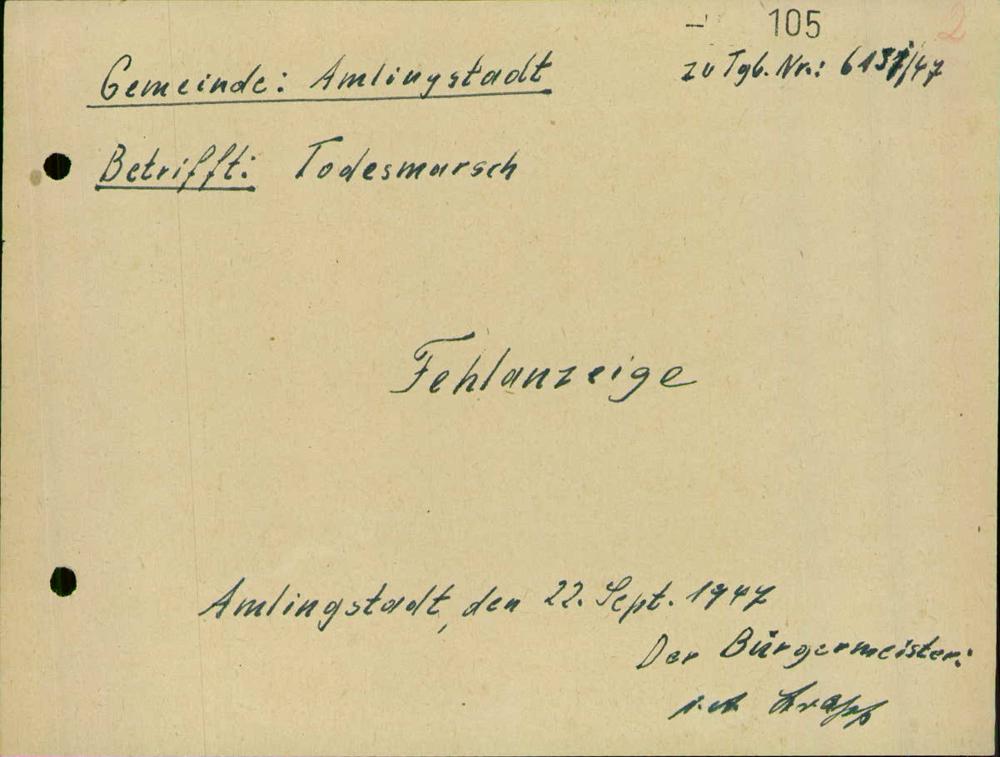 - 105
2
zu Tgb. Nr.: 6137/47
Gemeinde: Amlingstadt
Betrifft: Todesmarsch
Fehlanzeige
Amlingstadt, den 22. Sept. 1947
Der Bürgermeister:
i.A.